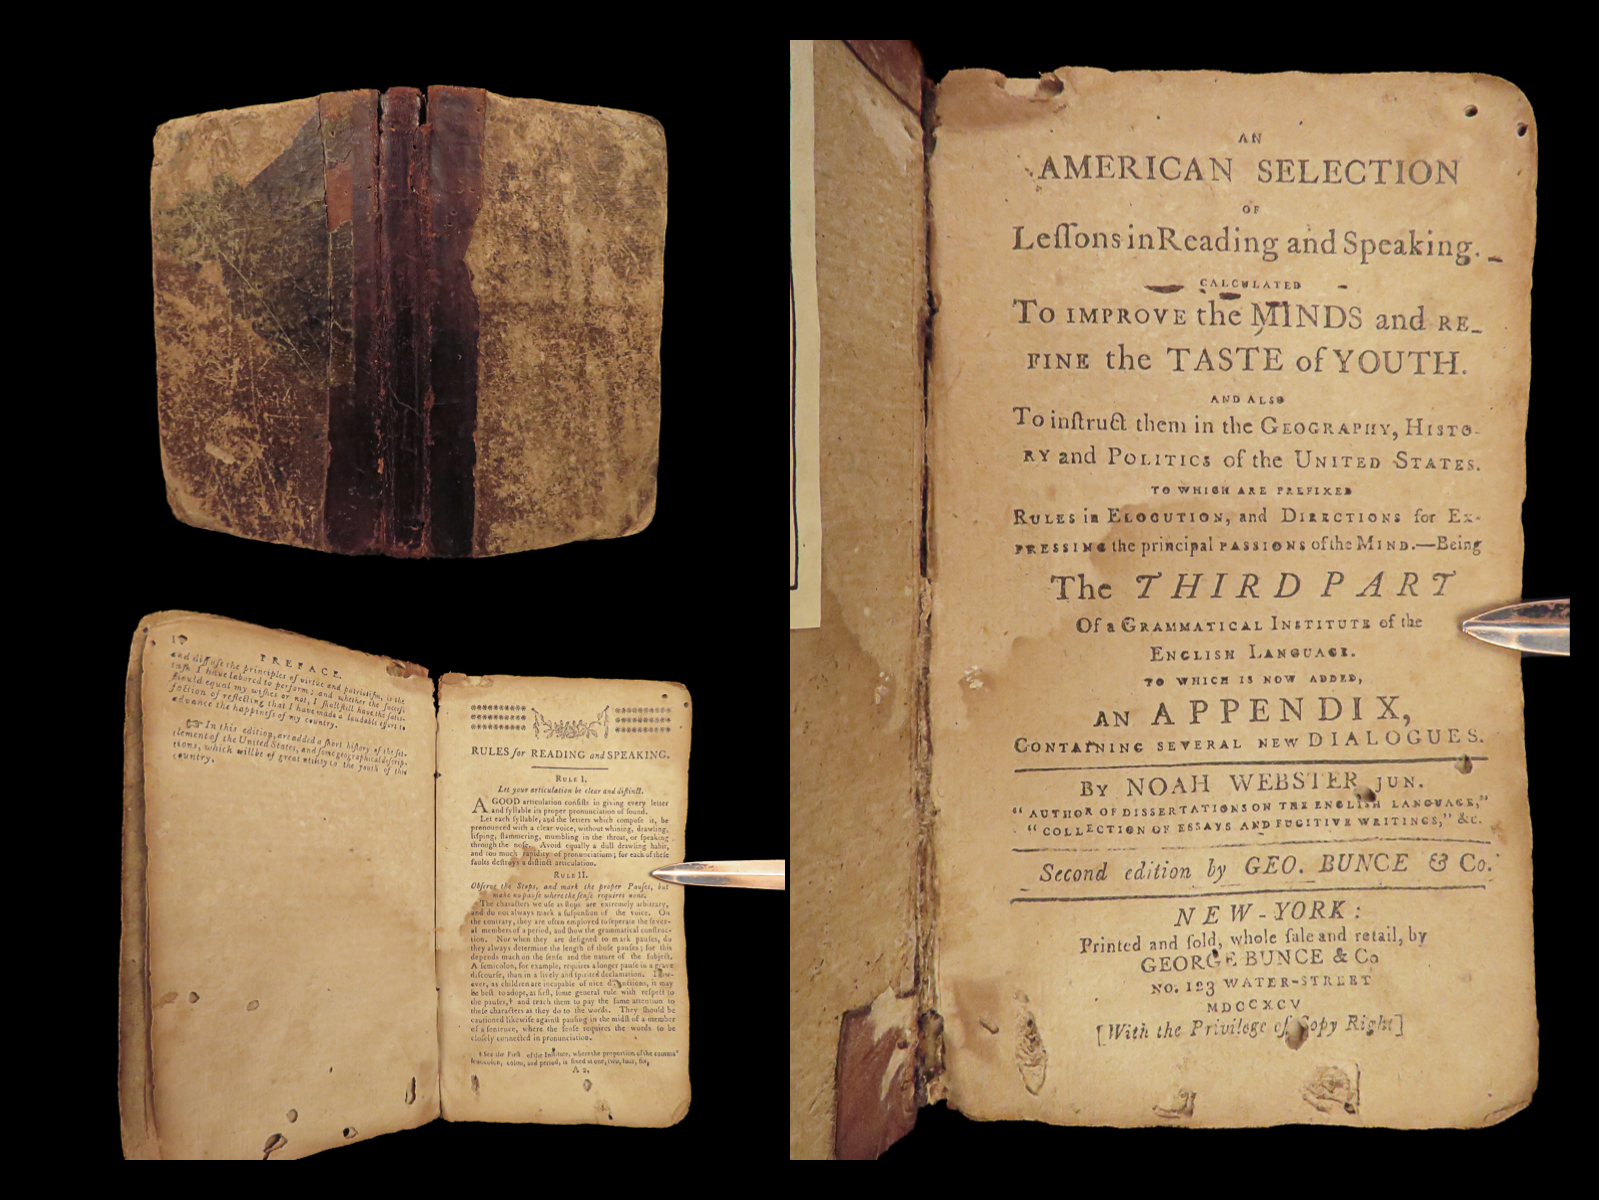 AN
AMERICAN SELECTION
OF
Leſſons in Reading and Speaking.
CALCULATED
To IMPROVE the MINDS and RE-
FINE the TASTE of YOUTH.
AND ALSO
To inſtruct them in the GEOGRAPHY, HISTO-
RY and POLITICS of the UNITED STATES.
TO WHICH ARE PREFIXED
RULES in ELOCUTION, and DIRECTIONS for EX-
PRESSING the principal PASSIONS of the MIND.—Being
The THIRD PART
Of a GRAMMATICAL INSTITUTE of the
ENGLISH LANGUAGE.
TO WHICH IS NOW ADDED,
AN APPENDIX,
CONTAINING SEVERAL NEW DIALOGUES.
BY NOAH WEBSTER JUN.
"AUTHOR OF DISSERTATIONS ON THE ENGLISH LANGUAGE,"
"COLLECTION OF ESSAYS AND FUGITIVE WRITINGS," &c.
Second edition by GEO. BUNCE & Co.
NEW-YORK:
Printed and ſold, whole ſale and retail, by
GEORGE BUNCE & Co
NO. 123 WATER-STREET
MDCCXCV
[With the Privilege of Copy Right]
PREFACE.
and diffuſe the principles of virtue and patriotiſm, is the
taſk I have labored to perform; and whether the ſucceſs
ſhould equal my wiſhes or not, I ſhall ſtill have the ſatis-
faction of reflecting that I have made a laudable effort to
advance the happineſs of my country.
☞ In this edition, are added a ſhort hiſtory of the ſet-
tlement of the United States, and ſome geographical deſcrip-
tions, which will be of great utility to the youth of this
country.
RULES for READING and SPEAKING.
RULE I.
Let your articulation be clear and diſtinct.
A GOOD articulation conſiſts in giving every letter
and ſyllable its proper pronunciation of ſound.
Let each ſyllable, and the letters which compoſe it, be
pronounced with a clear voice, without whining, drawling,
liſping, ſtammering, mumbling in the throat, or ſpeaking
through the noſe. Avoid equally a dull drawling habit,
and too much rapidity of pronunciation; for each of theſe
faults deſtroys a diſtinct articulation.
RULE II.
Obſerve the Stops, and mark the proper Pauſes, but
make no pauſe where the ſenſe requires none.
The characters we uſe as ſtops are extremely arbitrary,
and do not always mark a ſuſpenſion of the voice. On
the contrary, they are often employed to ſeperate the ſever-
al members of a period, and ſhow the grammatical conſtruc-
tion. Nor when they are deſigned to mark pauſes, do
they always determine the length of thoſe pauſes; for this
depends much on the ſenſe and the nature of the ſubject.
A ſemicolon, for example, requires a longer pauſe in a grave
diſcourſe, than in a lively and ſpirited declamation. How-
ever, as children are incapable of nice diſtinctions, it may
be beſt to adopt, at firſt, ſome general rule with reſpect to
the pauſes,† and teach them to pay the ſame attention to
theſe characters as they do to the words. They ſhould be
cautioned likewiſe againſt pauſing in the midſt of a member
of a ſentence, where the ſenſe requires the words to be
cloſely connected in pronunciation.
† See the Firſt of the Inſtitute, where the proportion of the comma
ſemicolon, colon, and period, is fixed at one, two, four, ſix,
A 2.